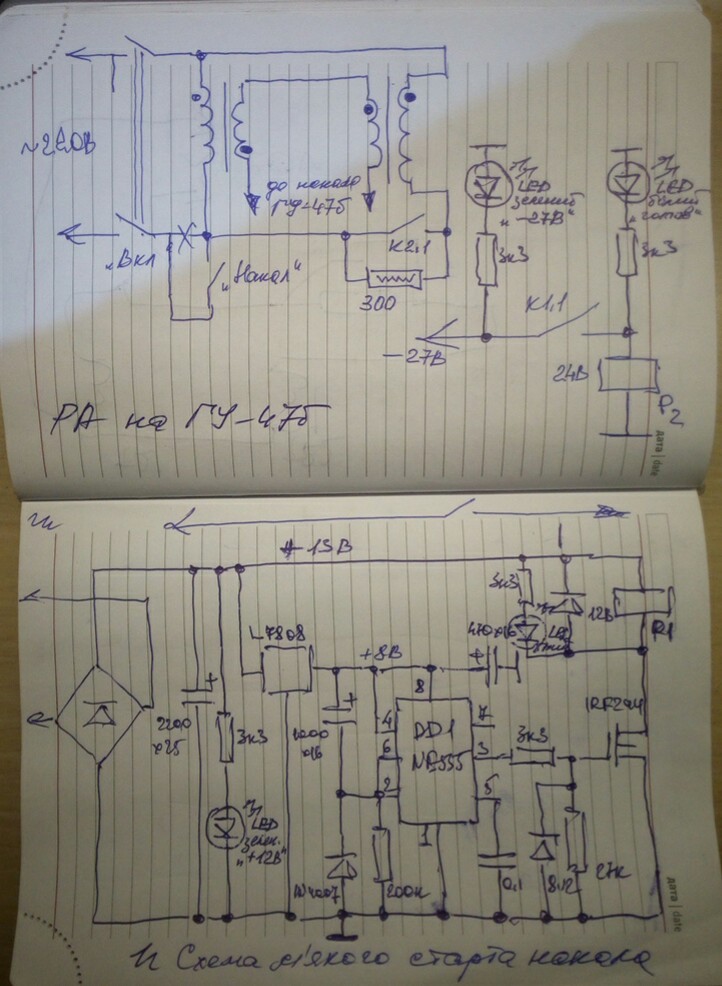 ~220В
"Вкл
"Накал"
до накала
ГУ-47б
К2,1
300
LED
зелений
"-27В"
3к3
LED
білий
"готов"
3к3
К1,1
-27В
24В
Р2
РА на ГУ-47б
дата | date
+15В
3к3
LED
12В
Р1
L7808
+8В
470х16
2200
х25
3к3
1000
х16
8
4
6
2
7
3
5
1
DD1
NE555
3к3
IRFZ44
LED
зелен.
"+12В"
1N4007
200к
0,1
8,2
27к
дата | date
Схема м'якого старта накала